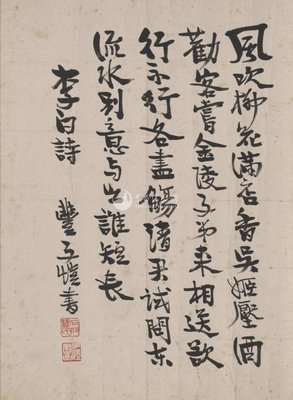 風吹柳花滿店香吳姬壓酒
勸客嘗金陵子弟來相送欲
行不行各盡觴請君試問東
流水別意与之誰短長
李白詩 豐子愷書